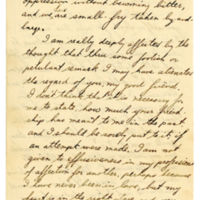 oppression without becoming bitter,
and we are small fry taken by and
large.
I am really deeply affected by the
thought that thru some foolish or
petulant remark I may have alienated
the regard of you, my good friend,
I don't think it necessary for
me to state how much your friend
ship has meant to me in the past
and I should be sorely put to it if
an attempt were made. I am not
given to effusiveness in my professions
of affection for another, perhaps because
I have never been in love, but my
heart is in the right